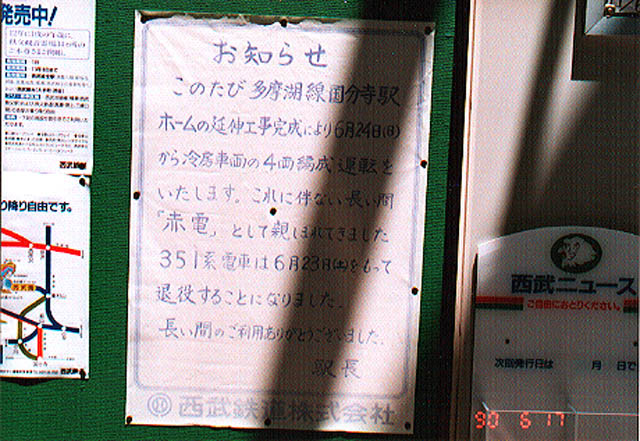 発売中!
西武鉄道
り降り自由です。
お知らせ
このたび多摩湖線国分寺駅
ホームの延伸工事完成により6月24日(日)
から冷房車両の4両編成運転を
いたします。これに伴ない長い間
「赤電」として親しまれてきました
351系電車は6月23日(土)をもって
退役することになりました。
長い間のご利用ありがとうございました。
駅長
西武鉄道株式会社
西武ニュース
ご自由におとりください。
次回発行日は 月 日で
90 6 17